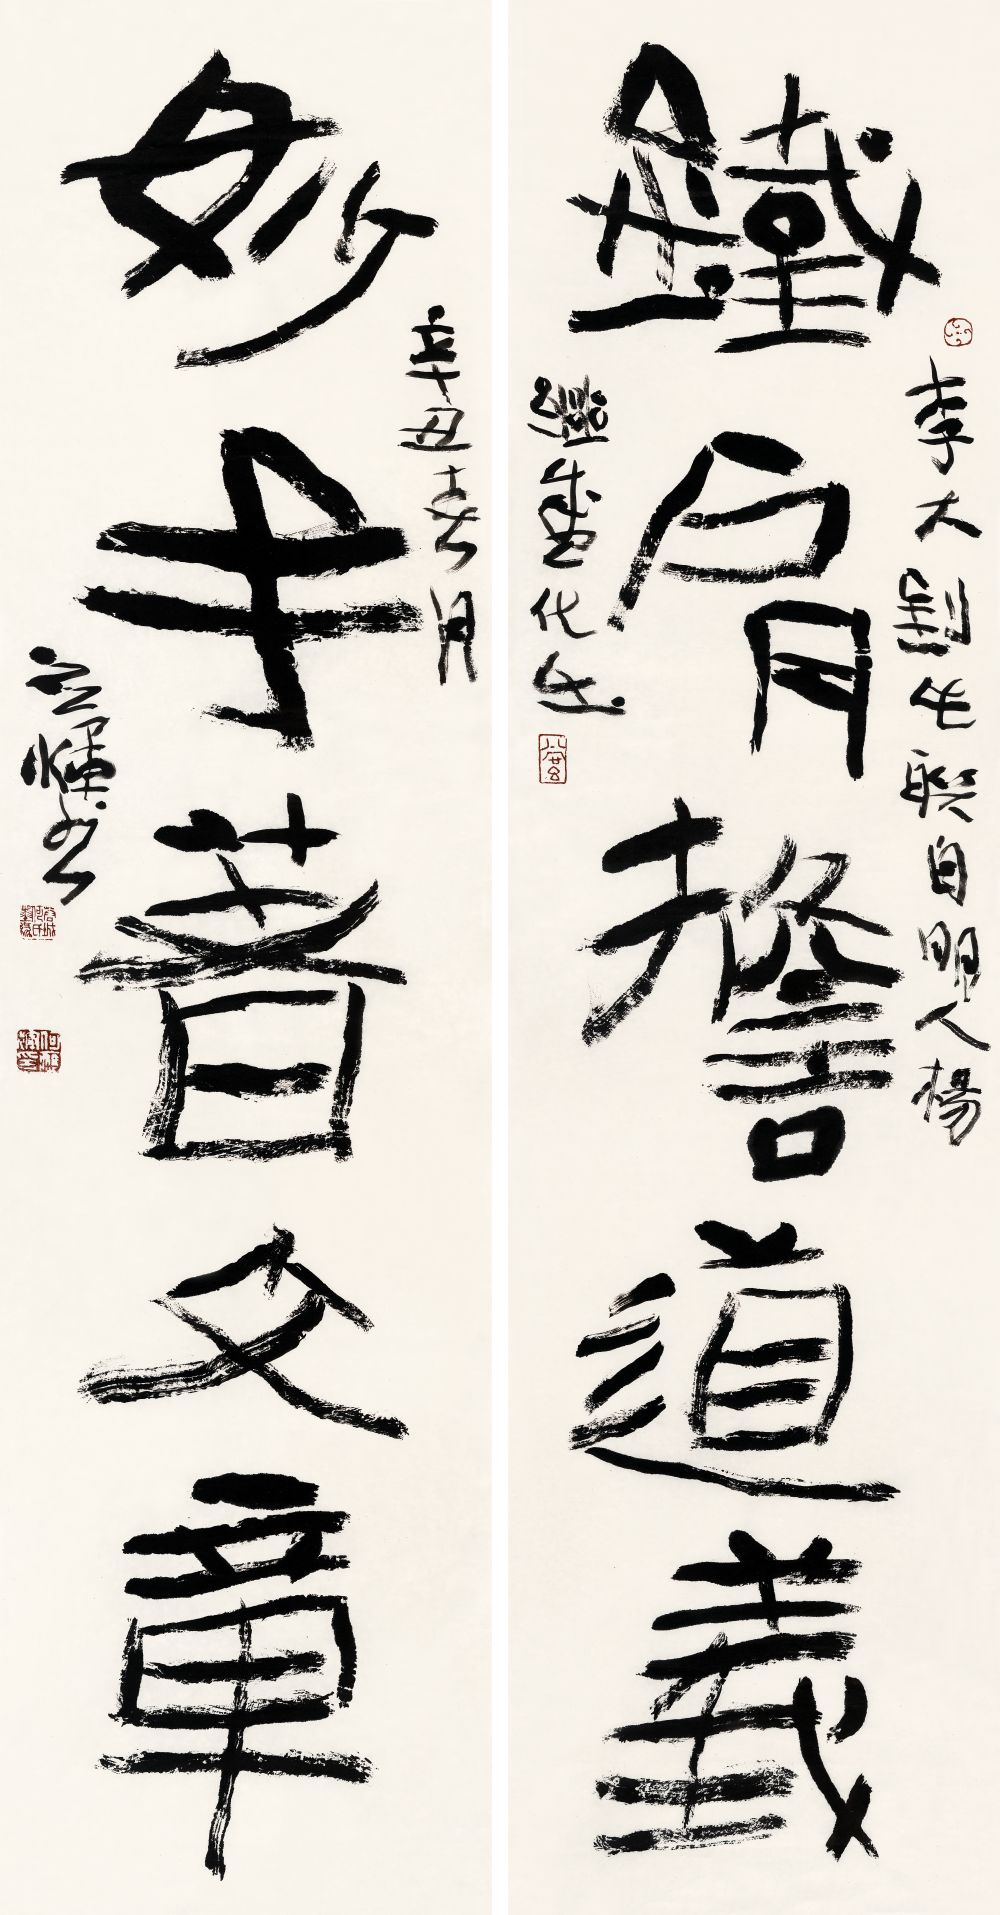 鐵肩擔道義
李大釗此聯自明人楊
繼盛化出
妙手著文章
辛丑春月
應輝書